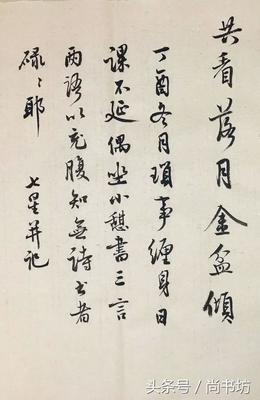 共看落月金盆傾
丁酉冬月瑣事纏身日
課不延偶坐小憩書三言
兩語以充腹知無詩書者
碌々耶
七星并記
头条号 / 尚书坊